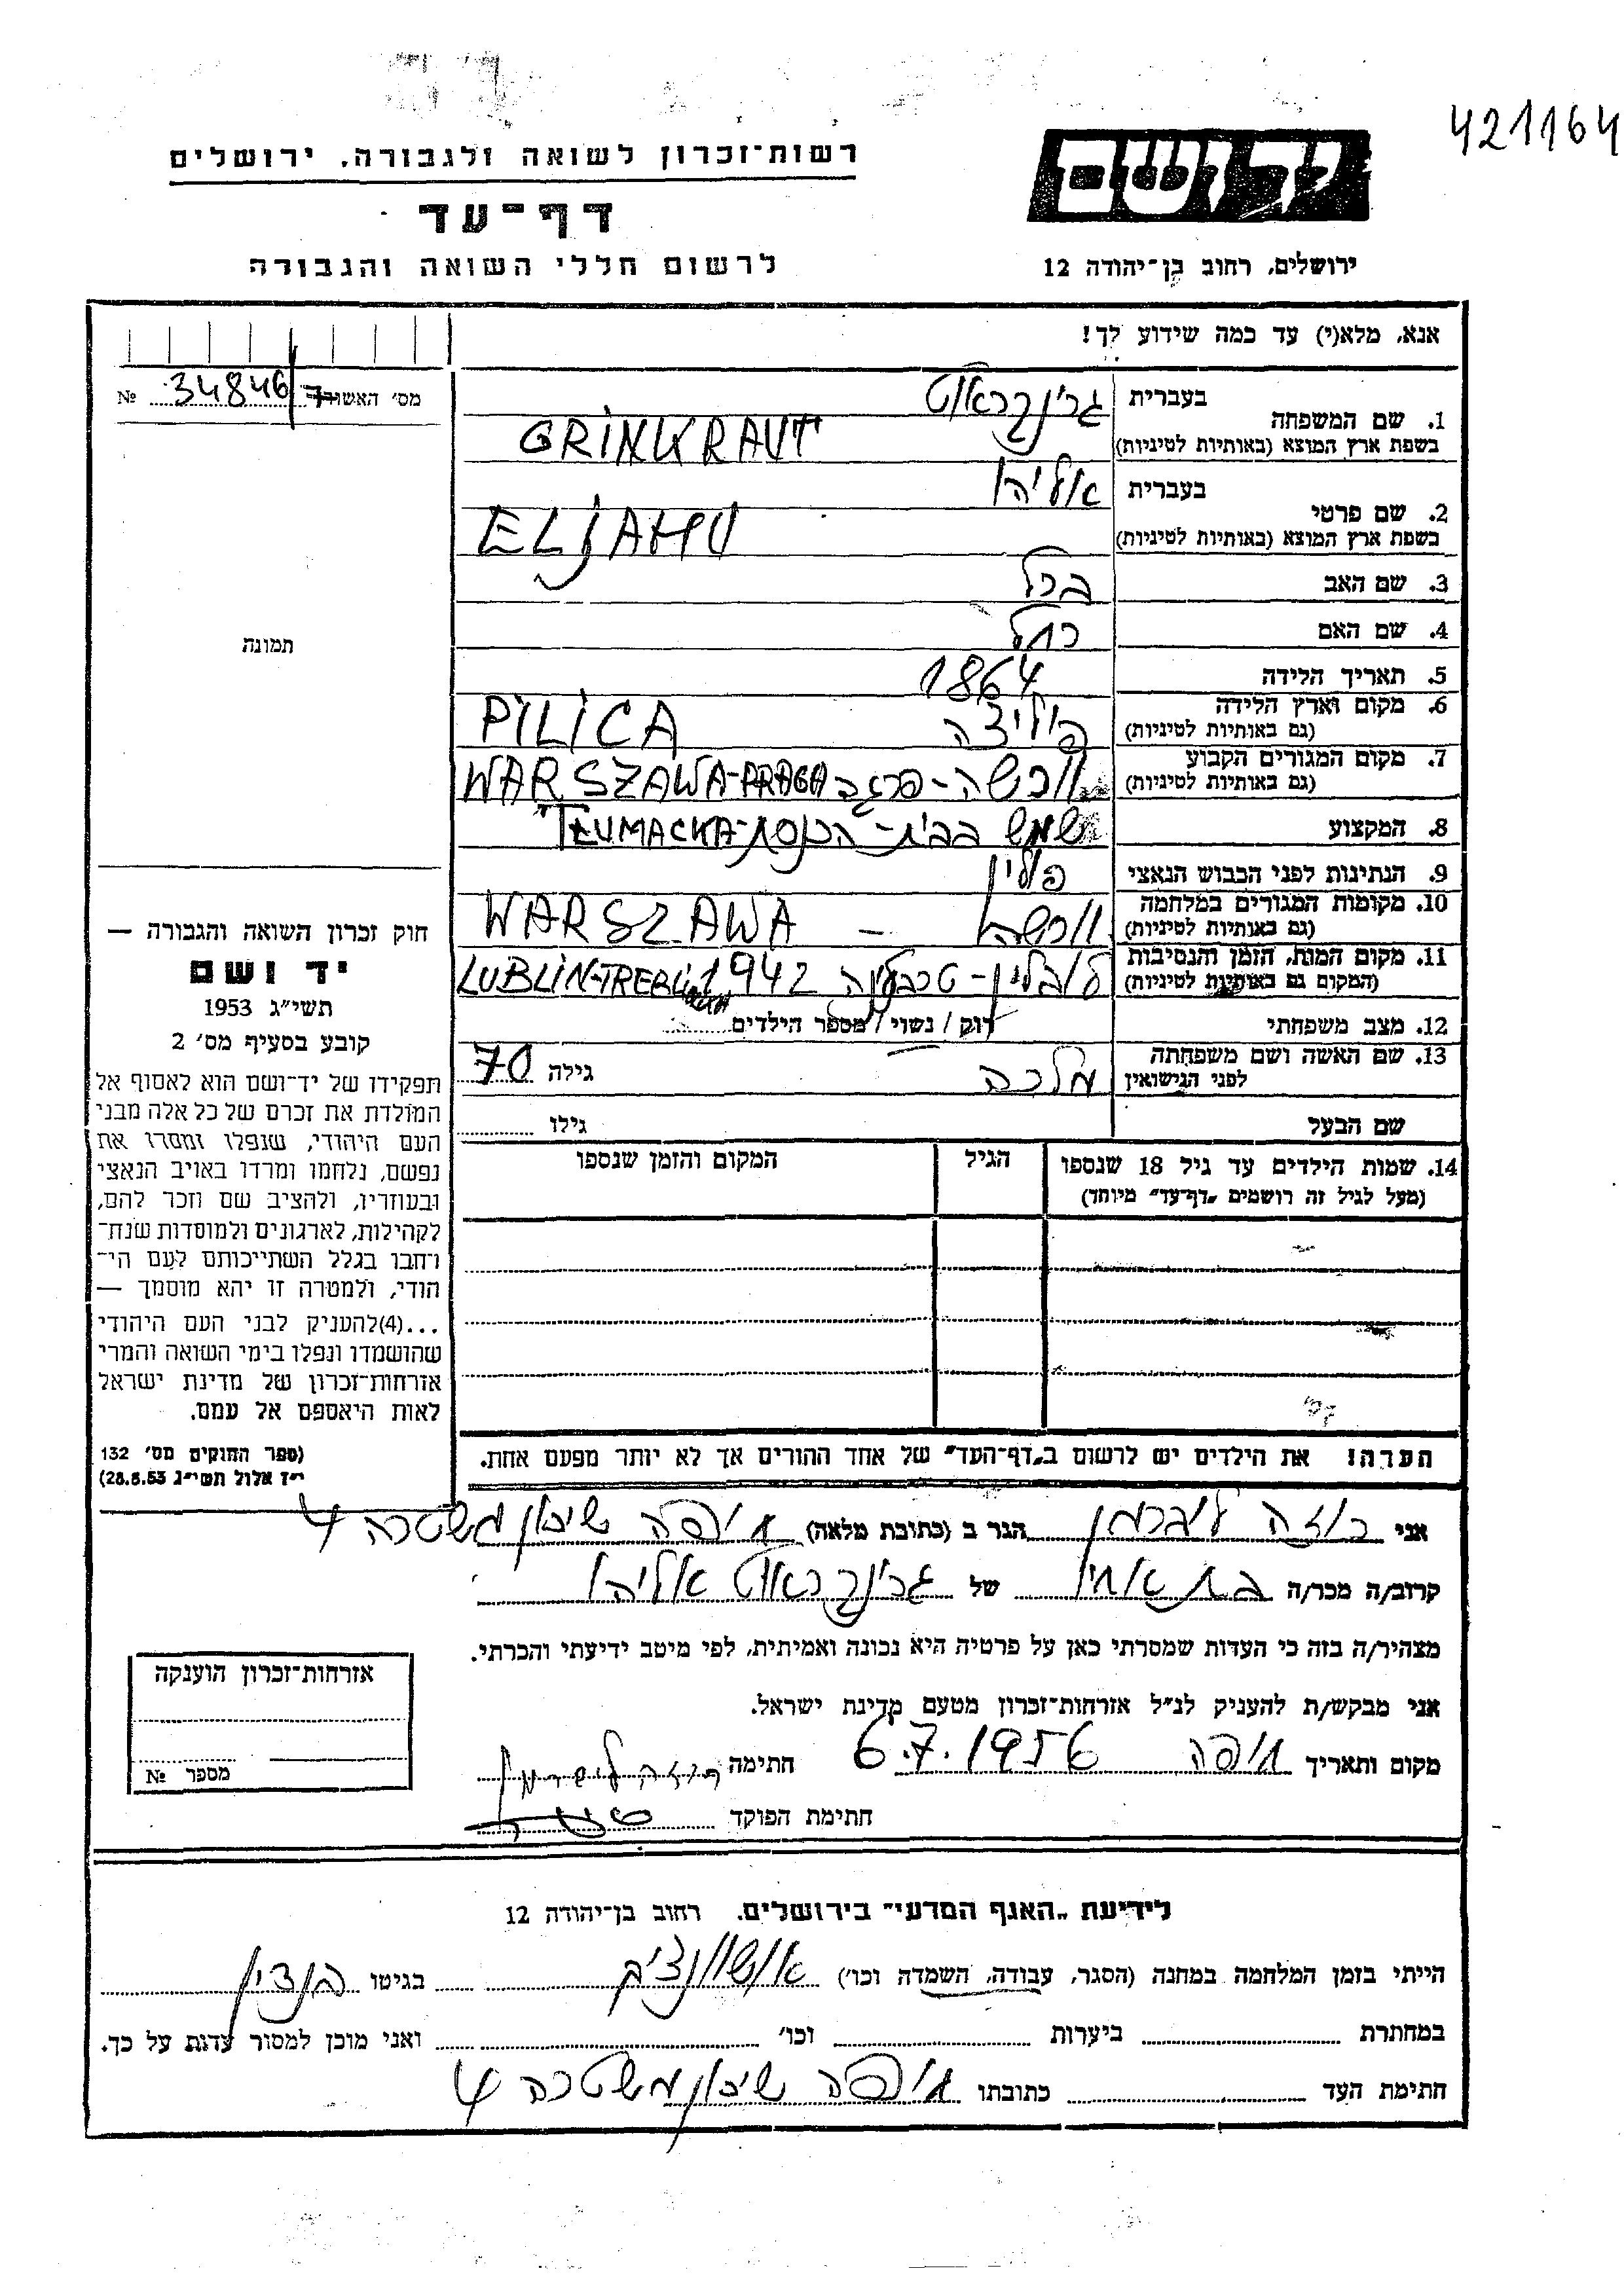 421164
יד ושם
רשות־זכרון לשואה ולגבורה, ירושלים
דף־עד
לרשום חללי השואה והגבורה
ירושלים, רחוב בן־יהודה 12
אנא, מלא(י) עד כמה שידוע לך!
מס׳ האשור 34846/7 №
תמונה
1. שם המשפחה
בעברית גרינקראוט
בשפת ארץ המוצא (באותיות לטיניות) GRINKRAUT
2. שם פרטי
בעברית אליהו
בשפת ארץ המוצא (באותיות לטיניות) ELIJAHU
3. שם האב
4. שם האם רחל
5. תאריך הלידה 1864
6. מקום וארץ הלידה פיליצה PILICA
(גם באותיות לטיניות)
7. מקום המגורים הקבוע וורשה - פרגה WARSZAWA-PRAGA
(גם באותיות לטיניות)
8. המקצוע שמש בבית-הכנסת TŁUMACKA
9. הנתינות לפני הכבוש הנאצי פולין
10. מקומות המגורים במלחמה וורשה - WARSZAWA
(גם באותיות לטיניות)
11. מקום המות, הזמן והנסיבות לובלין - טרבלינה 1942 LUBLIN-TREBLINKA
(המקום גם באותיות לטיניות)
12. מצב משפחתי רוק / נשוי / מספר הילדים
13. שם האשה ושם משפחתה
לפני הנישואין מלכה גילה 70
שם הבעל גילו
14. שמות הילדים עד גיל 18 שנספו הגיל המקום והזמן שנספו
(מעל לגיל זה רושמים „דף־עד״ מיוחד)
הערה! את הילדים יש לרשום ב„דף־העד״ של אחד ההורים אך לא יותר מפעם אחת.
חוק זכרון השואה והגבורה —
יד ושם
תשי״ג 1953
קובע בסעיף מס׳ 2
תפקידו של יד־ושם הוא לאסוף אל
המולדת את זכרם של כל אלה מבני
העם היהודי, שנפלו ומסרו את
נפשם, נלחמו ומרדו באויב הנאצי
ובעוזריו, ולהציב שם וזכר להם,
לקהילות, לארגונים ולמוסדות שנח־
רבו בגלל השתייכותם לעם הי־
הודי, ולמטרה זו יהא מוסמך —
...(4)להעניק לבני העם היהודי
שהושמדו ונפלו בימי השואה והמרי
אזרחות־זכרון של מדינת ישראל
לאות היאספם אל עמם.
(ספר החוקים מס׳ 132
י״ז אלול תשי״ג 28.8.53)
אני רוזה ליברמן הגר ב (כתובת מלאה) חיפה שיכון משטרה 4
קרוב/ה מכר/ה בת אחיו של גרינקראוט אליהו
מצהיר/ה בזה כי העדות שמסרתי כאן על פרטיה היא נכונה ואמיתית, לפי מיטב ידיעתי והכרתי.
אני מבקש/ת להעניק לנ״ל אזרחות־זכרון מטעם מדינת ישראל.
מקום ותאריך חיפה 6.7.1956 חתימה רוזה ליברמן
חתימת הפוקד
אזרחות־זכרון הוענקה
מספר №
לידיעת „האגף המדעי״ בירושלים. רחוב בן־יהודה 12
הייתי בזמן המלחמה במחנה (הסגר, עבודה, השמדה וכו׳) אושוונצ'ים בגיטו בנדין
במחתרת ביערות וכו׳ ואני מוכן למסור עדות על כך.
חתימת העד כתובתו חיפה שיכון משטרה 4